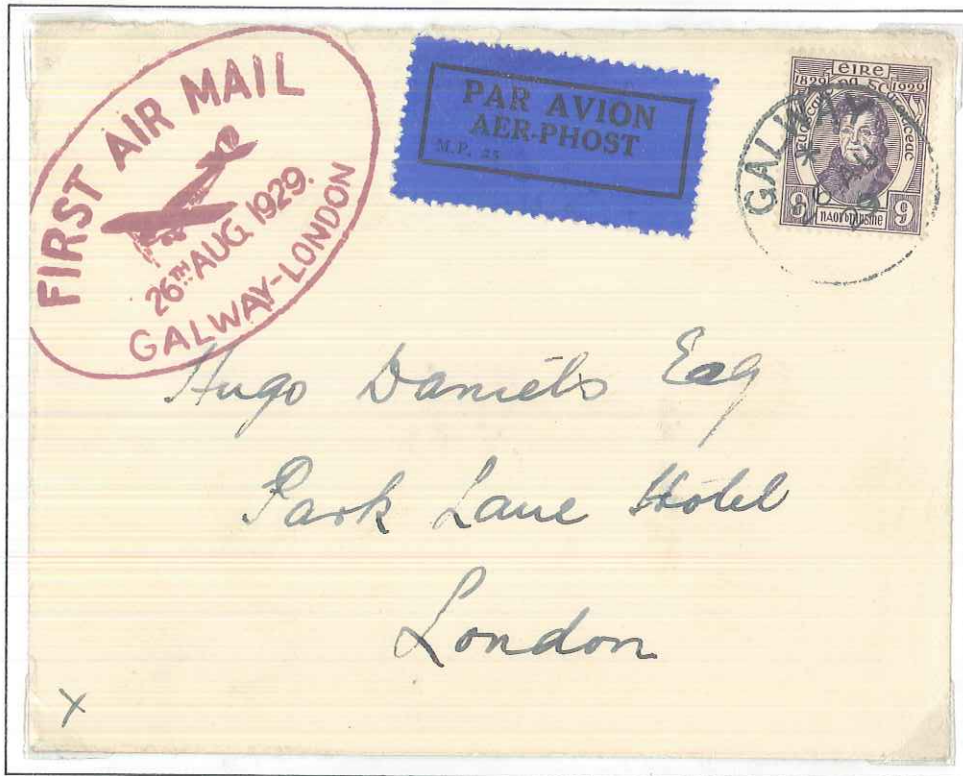 FIRST AIR MAIL
26TH AUG 1929.
GALWAY-LONDON
PAR AVION
AER-PHOST
M.P. 25
éire
1829 1929
9 9
GALWAY
Hugo Daniels Esq
Park Lane Hotel
London
X